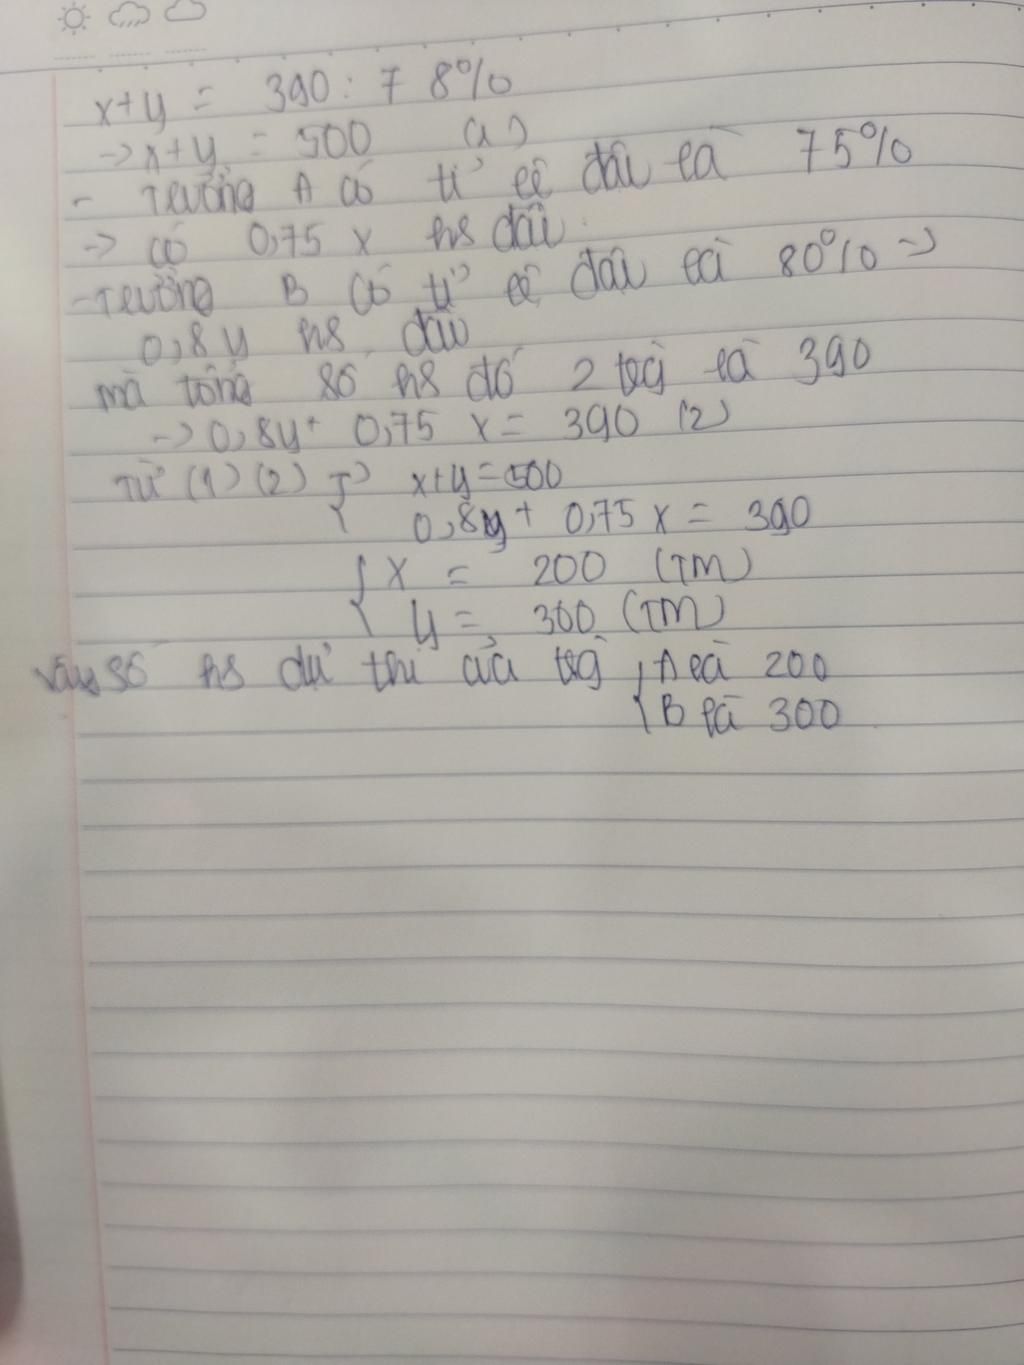 x+y = 390 : 78%
→ x+y = 500 (1)
- Trường A có tỉ lệ đậu là 75%
→ có 0,75 x hs đậu
- Trường B có tỉ lệ đậu là 80% →
0,8y hs đậu
mà tổng số hs đỗ 2 trg là 390
→ 0,8y + 0,75 x = 390 (2)
Từ (1) (2) → { x+y = 500
0,8y + 0,75 x = 390
{ x = 200 (TM)
y = 300 (TM)
Vậy số hs dự thi của trg { A là 200
B là 300